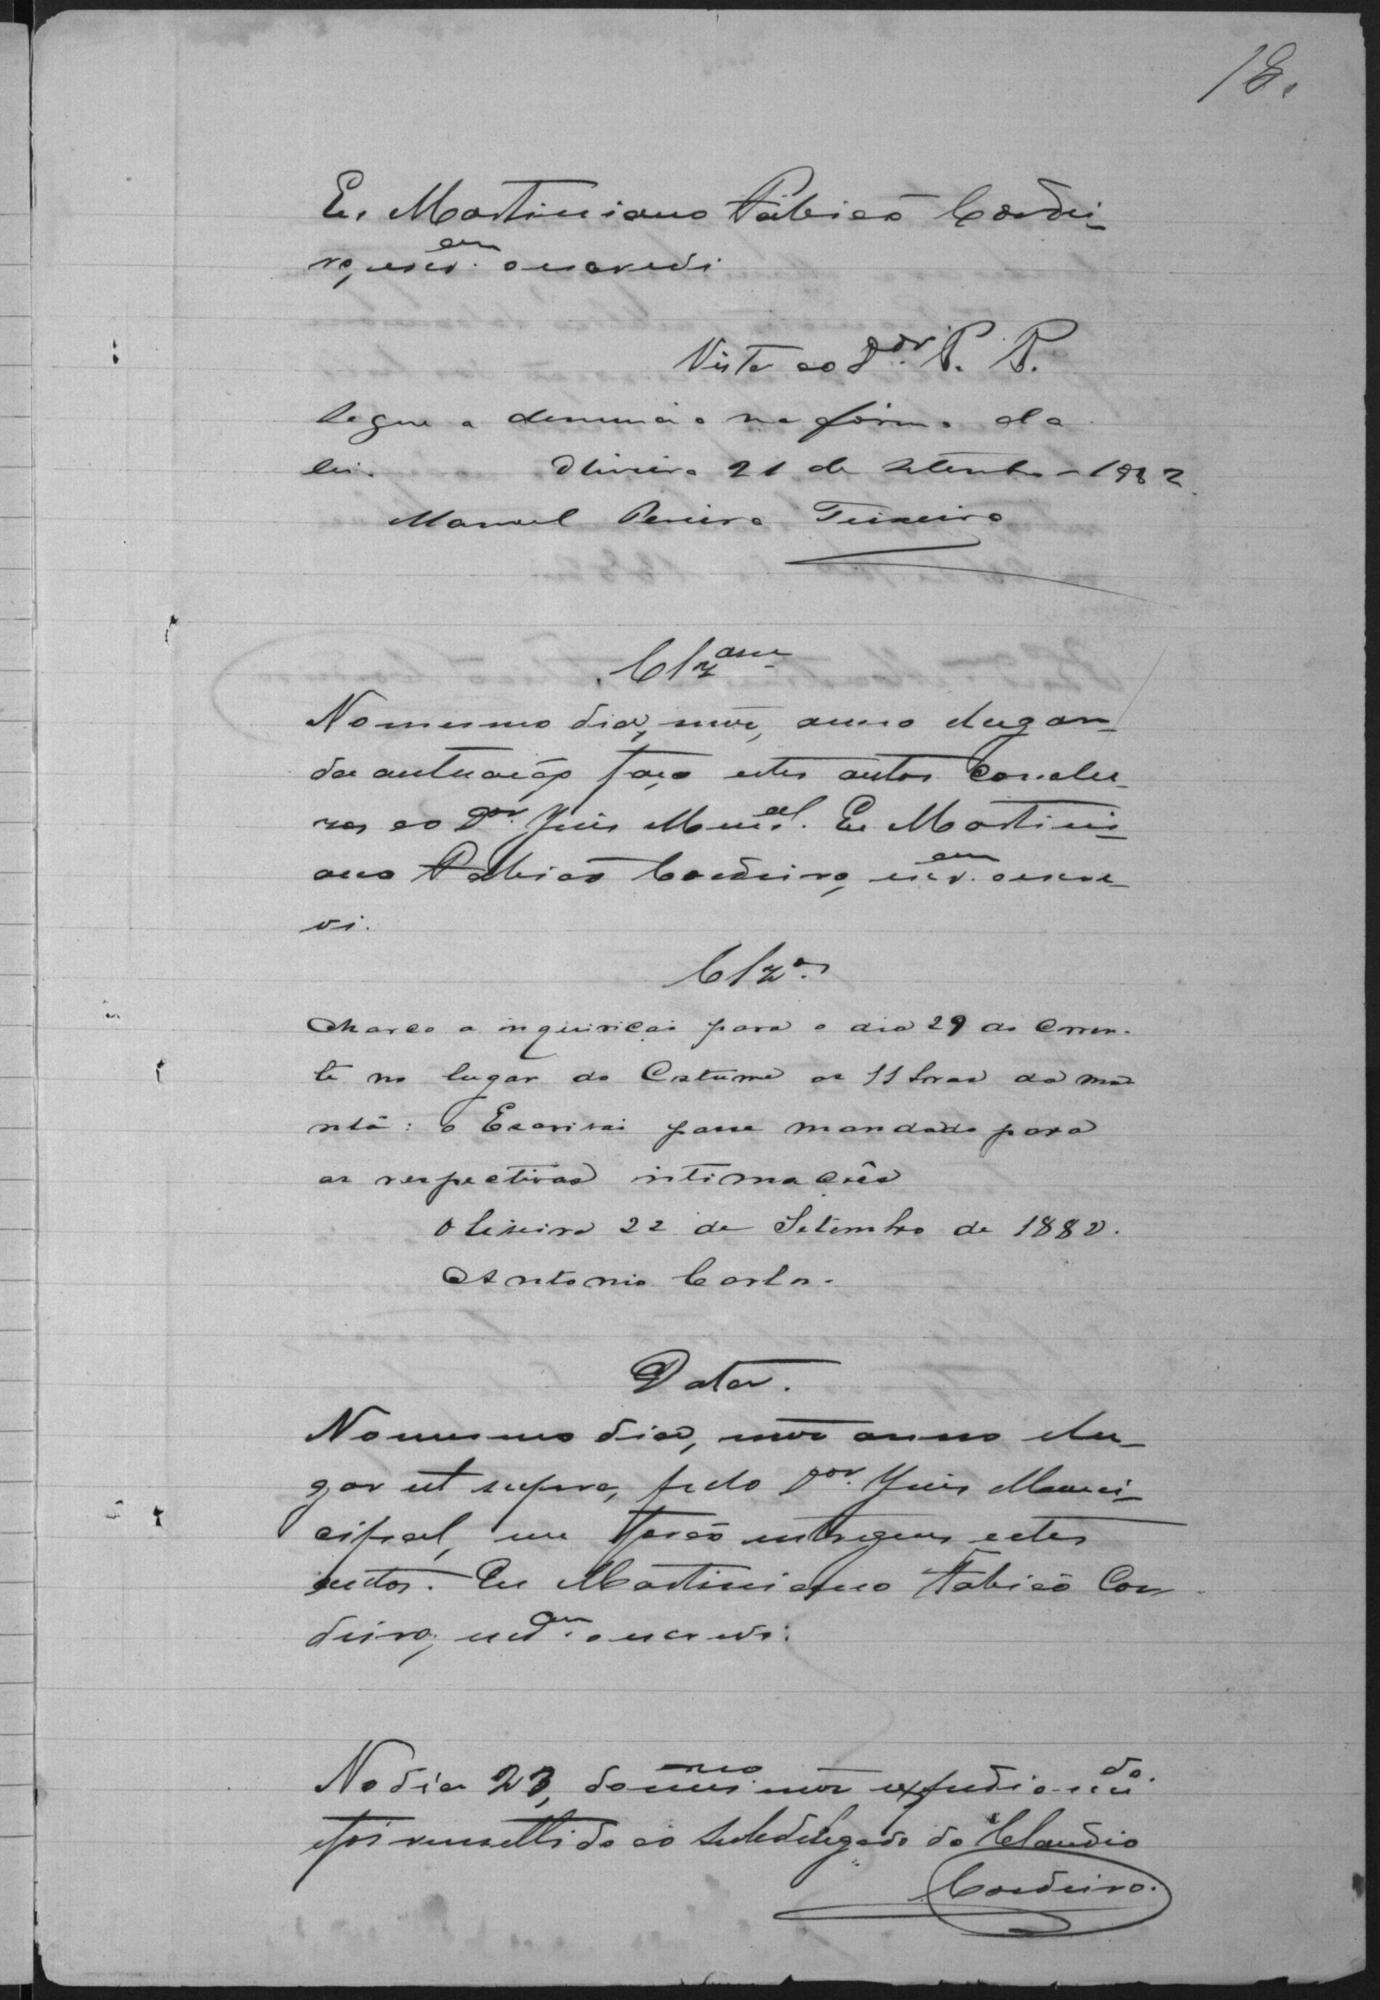 18.
Eu, Martiniano Fabião Cordei-
ro, escr.am o escrevi
Vista ao Dor. P. P.
Segue a denuncia na forma da
lei. Oliveira 21 de Setembro 1882.
Manoel Pereira Teixeira
Clzam
No mesmo dia, mez, anno e lugar
da autuação faço estes autos conclu-
zos ao Dor. Juis Munal. Eu Martini-
ano Fabião Cordeiro, escr.am o escre-
vi.
Clzos
Marco a inquirição para o dia 29 do corren-
te no lugar do Costume as 11 horas da ma-
nhã: o Escrivão passe mandado para
as respectivas intimações
Oliveira 22 de Setembro de 1882.
Antonio Carlos.
Data.
No mesmo dia, mez anno e lu-
gar ut supra, pelo Dor. Juis Muni-
cipal, me forão entregues estes
autos. Eu Martiniano Fabião Cor-
deiro, escr.am o escrevi.
No dia 23, do mesmo mez expedio-se
foi remettido ao Subdelegado do Claudio
Cordeiro.